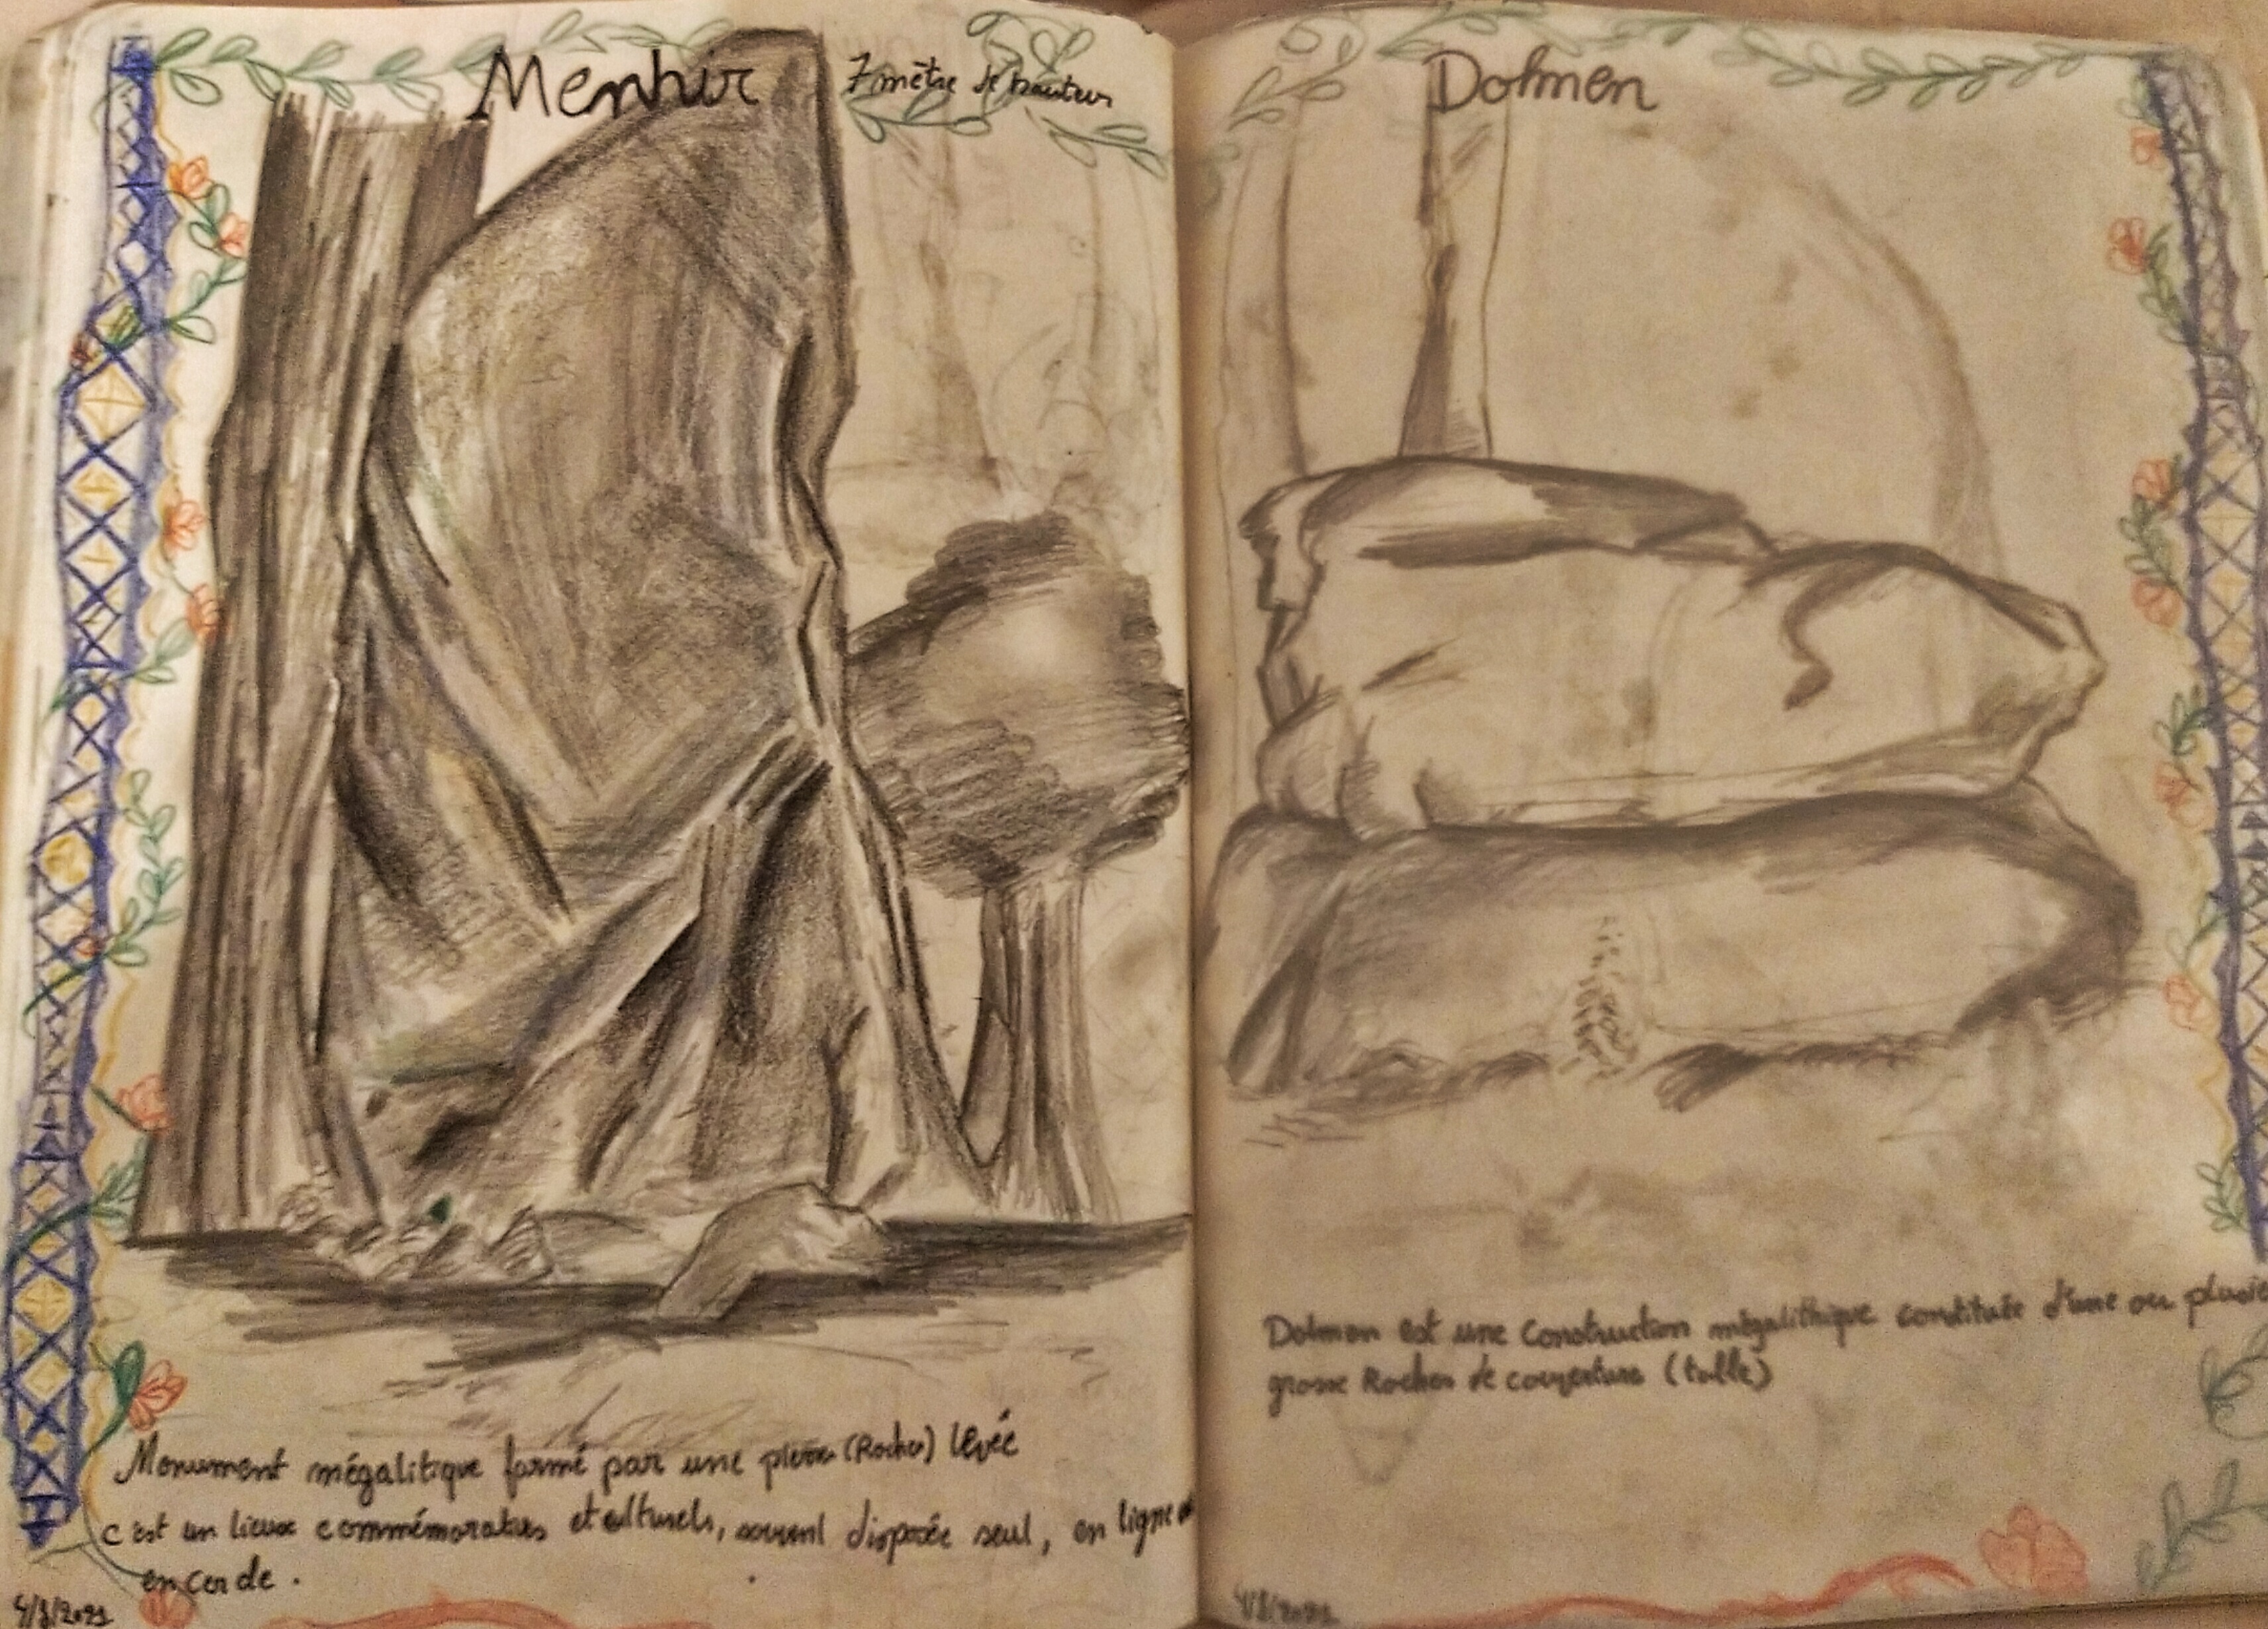 Menhir
7 mètre de hauteur
Monument mégalitique formé par une pierre (Rocher) levée
c'est un lieux commémoratifs et culturels, souvent disposée seul, en ligne
en cercle.
Dolmen
Dolmen est une Construction mégalithique constituée d'une ou
grosse Rocher de couverture (table)